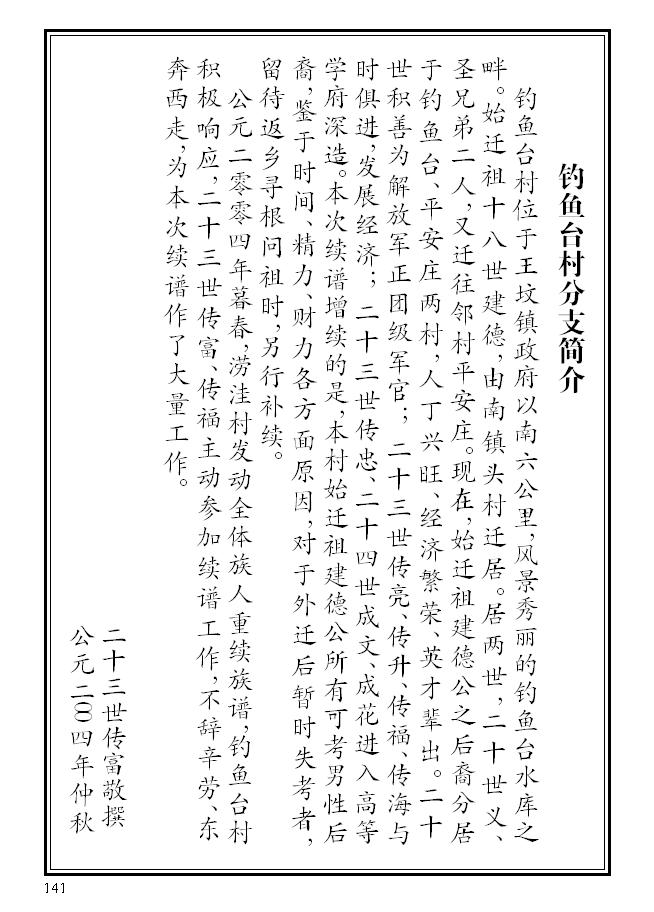 钓鱼台村分支简介
钓鱼台村位于王坟镇政府以南六公里，风景秀丽的钓鱼台水库之
畔。始迁祖十八世建德，由南镇头村迁居。居两世，二十世义、
圣兄弟二人，又迁往邻村平安庄。现在，始迁祖建德公之后裔分居
于钓鱼台、平安庄两村，人丁兴旺、经济繁荣、英才辈出。二十
世积善为解放军正团级军官；二十三世传亮、传升、传福、传海与
时俱进，发展经济；二十三世传忠、二十四世成文、成花进入高等
学府深造。本次续谱增续的是，本村始迁祖建德公所有可考男性后
裔，鉴于时间、精力、财力各方面原因，对于外迁后暂时失考者，
留待返乡寻根问祖时，另行补续。
公元二零零四年暮春，涝洼村发动全体族人重续族谱，钓鱼台村
积极响应，二十三世传富、传福主动参加续谱工作，不辞辛劳、东
奔西走，为本次续谱作了大量工作。
二十三世传富敬撰
公元二〇〇四年仲秋
141